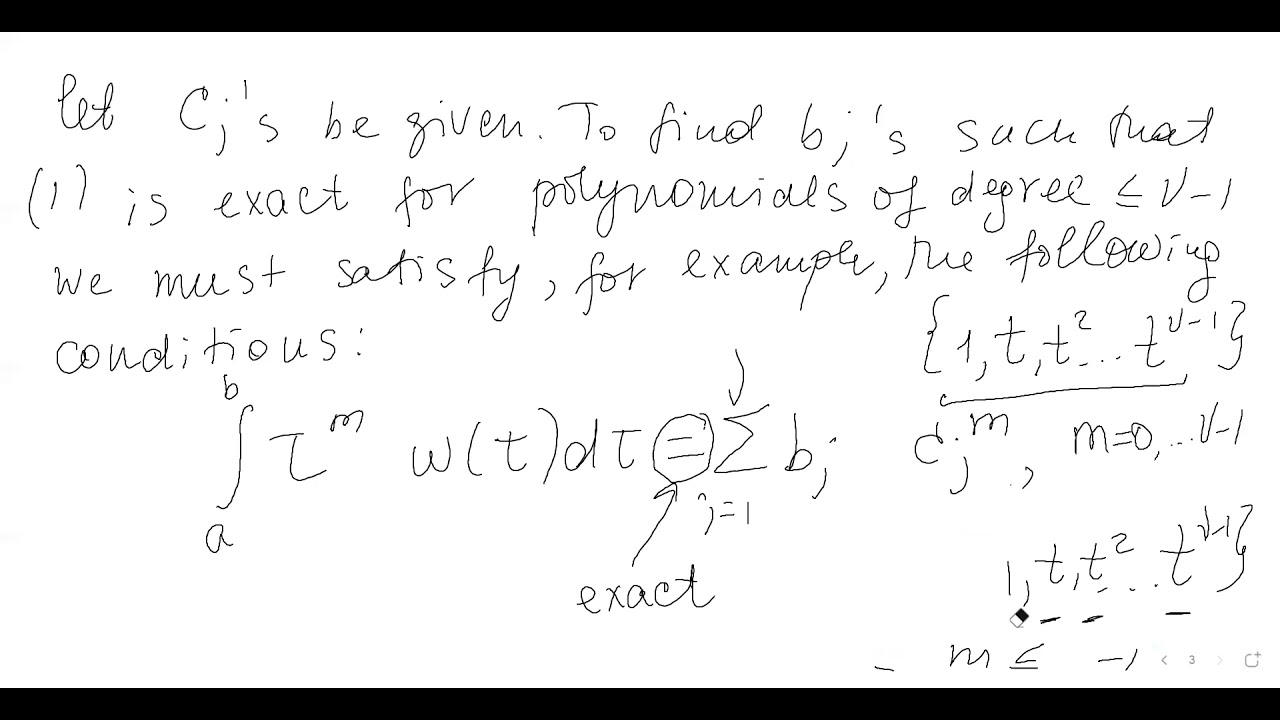 let Cj's be given. To find bj's such that
(1) is exact for polynomials of degree ≤ ν-1
we must satisfy, for example, the following
conditions:
{1, t, t² ... t^{ν-1}}
∫_a^b τ^m w(t)dτ = Σ_{j=1}^ν b_j c_j^m, m=0,...ν-1
exact
1, t, t² ... t^{ν-1}}
m ≤ -1
3